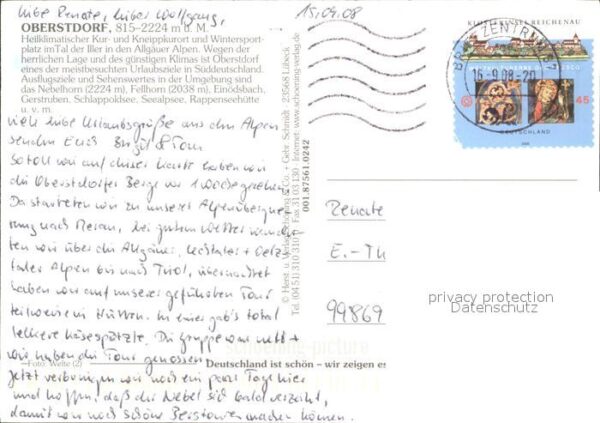 liebe Renate, lieber Wolfgang, 15.09.08
OBERSTDORF, 815–2224 m ü. M.
Heilklimatischer Kur- und Kneippkurort und Wintersport-
platz im Tal der Iller in den Allgäuer Alpen. Wegen der
herrlichen Lage und des günstigen Klimas ist Oberstdorf
eines der meistbesuchten Urlaubsziele in Süddeutschland.
Ausflugsziele und Sehenswertes in der Umgebung sind
das Nebelhorn (2224 m), Fellhorn (2038 m), Einödsbach,
Gerstruben, Schlappoldsee, Seealpsee, Rappenseehütte
u. v. m.
viele liebe Urlaubsgrüße aus den Alpen
senden Euch Birgit & Tom
So toll wie auf dieser Karte haben wir
die Oberstdorfer Berge vor 1 Woche gesehen.
Da starteten wir zu unserer Alpenüberque-
rung nach Meran, bei gutem Wetter wander-
ten wir über die Allgäuer, Lechtaler + Oetz-
taler Alpen bis nach Tirol, übernachtet
haben wir auf unserer geführten Tour
teilweise in Hütten. In einer gab's total
leckere Käsespätzle. Die Gruppe war nett +
wir haben die Tour genossen.
Foto: Welte (2)
Jetzt verbringen wir noch ein paar Tage hier
und hoffen, daß der Nebel sich bald verzieht,
damit wir noch schöne Bergtouren machen können.
© Herst. u. Verlag Schöning & Co. + Gebr. Schmidt · 23568 Lübeck
Tel. (04 51) 310 310 · Fax 31 03 130 · Internet: www.schoening-verlag.de
001.87561.0242
schoening-picture
Deutschland ist schön – wir zeigen es
KLOSTERINSEL REICHENAU
BRIEFZENTRUM
15.-9.08-20
45
DEUTSCHLAND
Renate
E.-Th
99869
privacy protection
Datenschutz